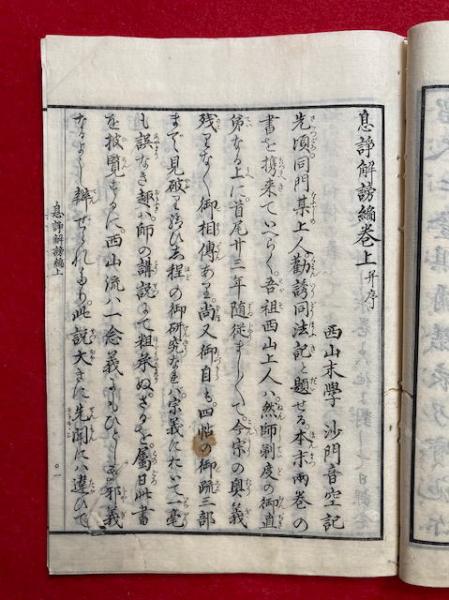 息諍解謗編巻上并序
西山末學 沙門音空記
先頃同門某上人勸誘同法記と題せる。本末兩巻の
書を携來ていへらく。吾祖西山上人ハ。然師剃度の御直
弟なる上に。首尾廿三年隨從ましくて。今宗の奥義
残りなく御相傳あり。尚又御自も。四帖の御疏三部
まで見破り給ひし程の御研究なれバ。宗義にたいて一毫
も誤なき趣ハ。師の講説にて粗承ぬ。さるを。屬日此書
を披覧するに。西山流ハ一念義
邪義
なるよし辨せられたり。此説大きに先聞にハ違ひて
息諍解謗編上
〇一